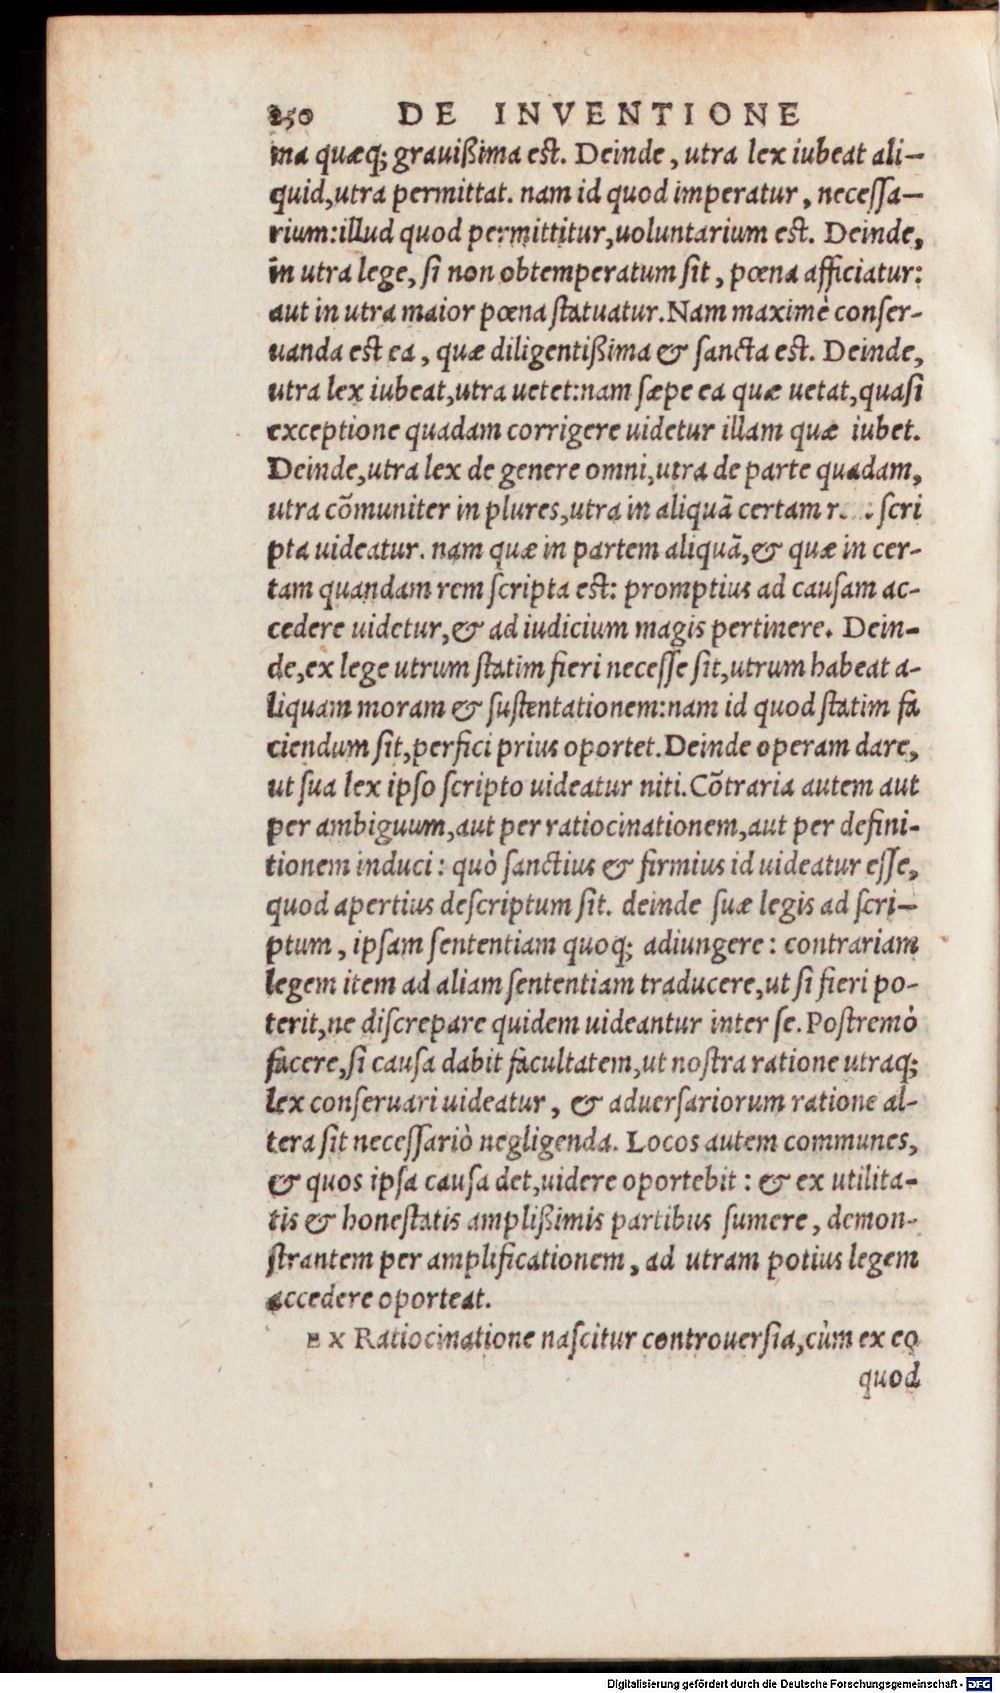 250 DE INVENTIONE
ma quæq; grauißima est. Deinde, utra lex iubeat ali-
quid, utra permittat. nam id quod imperatur, necessa-
rium: illud quod permittitur, uoluntarium est. Deinde,
in utra lege, si non obtemperatum sit, pœna afficiatur:
aut in utra maior pœna statuatur. Nam maximè conser-
uanda est ea, quæ diligentißima & sancta est. Deinde,
utra lex iubeat, utra uetet: nam sæpe ea quæ uetat, quasi
exceptione quadam corrigere uidetur illam quæ iubet.
Deinde, utra lex de genere omni, utra de parte quadam,
utra cõmuniter in plures, utra in aliquã certam scri
pta uideatur. nam quæ in partem aliquã, & quæ in cer-
tam quandam rem scripta est: promptius ad causam ac-
cedere uidetur, & ad iudicium magis pertinere. Dein-
de, ex lege utrum statim fieri necesse sit, utrum habeat a-
liquam moram & sustentationem: nam id quod statim fa
ciendum sit, perfici prius oportet. Deinde operam dare,
ut sua lex ipso scripto uideatur niti. Cõtraria autem aut
per ambiguum, aut per ratiocinationem, aut per defini-
tionem induci: quò sanctius & firmius id uideatur esse,
quod apertius descriptum sit. deinde suæ legis ad scri-
ptum, ipsam sententiam quoq; adiungere: contrariam
legem item ad aliam sententiam traducere, ut si fieri po-
terit, ne discrepare quidem uideantur inter se. Postremò
facere, si causa dabit facultatem, ut nostra ratione utraq;
lex conseruari uideatur, & aduersariorum ratione al-
tera sit necessariò negligenda. Locos autem communes,
& quos ipsa causa det, uidere oportebit: & ex utilita-
tis & honestatis amplißimis partibus sumere, demon-
strantem per amplificationem, ad utram potius legem
accedere oporteat.
EX Ratiocinatione nascitur controuersia, cùm ex eo
quod
Digitalisierung gefördert durch die Deutsche Forschungsgemeinschaft - DFG